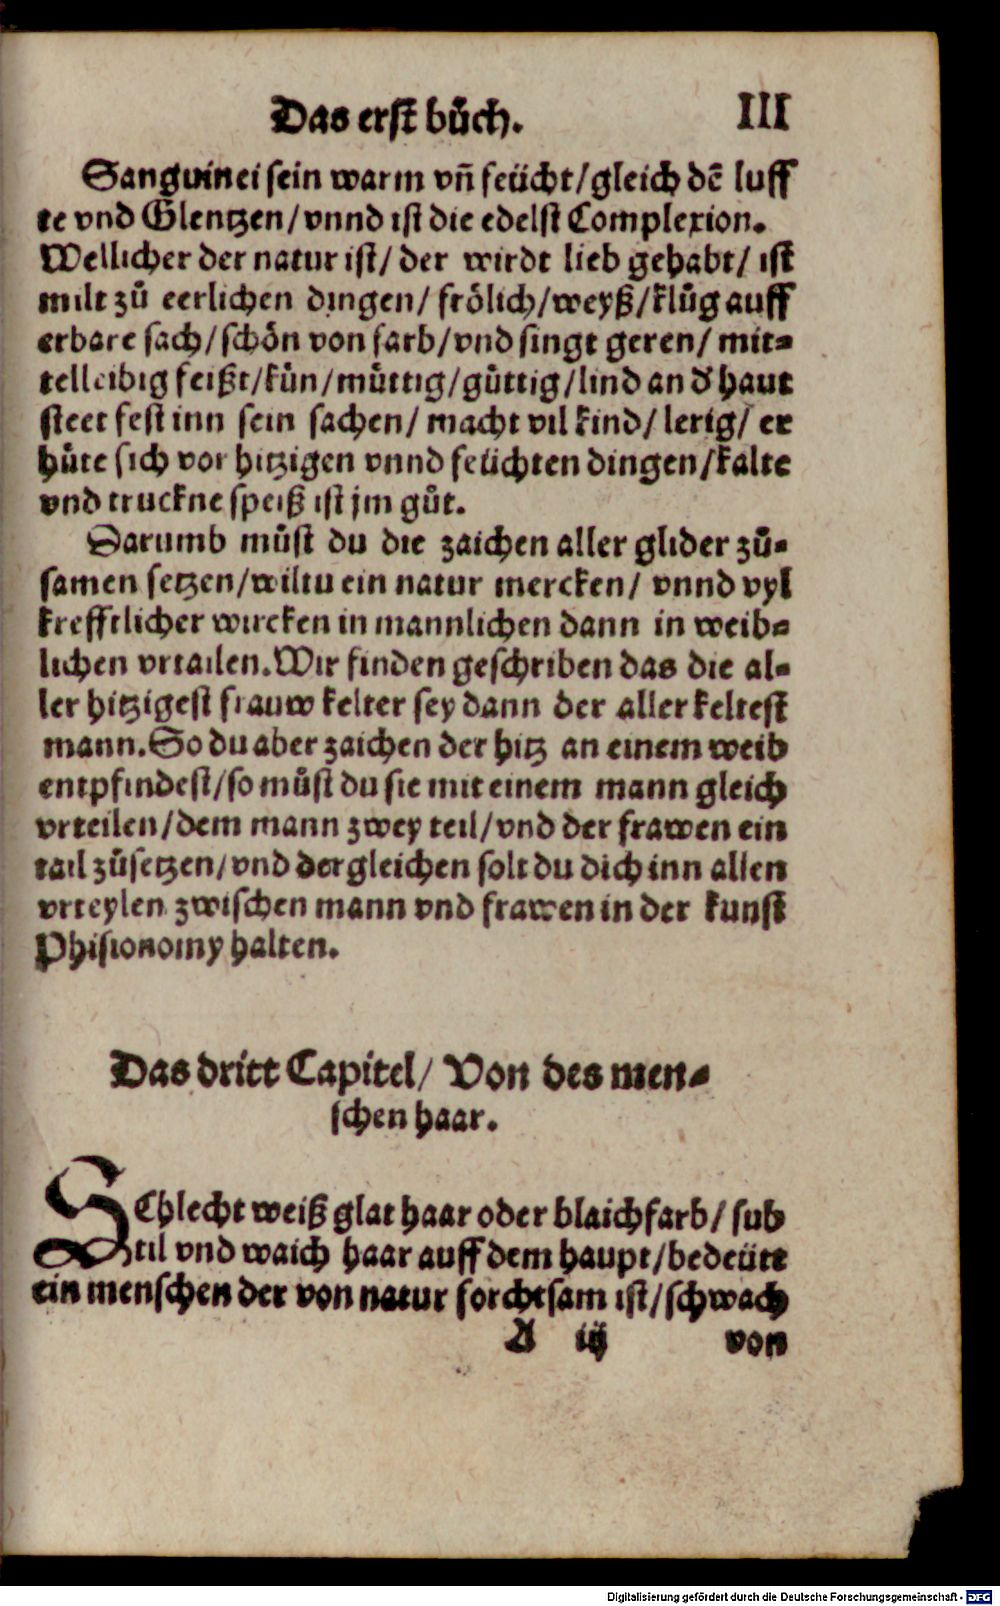 Das erst bůch. III
Sanguinei sein warm vñ feücht/gleich dẽ luff
te vnd Glentzen/vnnd ist die edelst Complexion.
Wellicher der natur ist/der wirdt lieb gehabt/ist
milt zů eerlichen dingen/frölich/weyß/klůg auff
erbare sach/schön von farb/vnd singt geren/mit⸗
telleibig feißt/kün/můttig/güttig/lind an d' haut
steet fest inn sein sachen/macht vil kind/lerig/er
hůte sich vor hitzigen vnnd feüchten dingen/kalte
vnd truckne speiß ist jm gůt.
Darumb můst du die zaichen aller glider zů⸗
samen setzen/wiltu ein natur mercken/vnnd vyl
krefftlicher wircken in mannlichen dann in weib⸗
lichen vrtailen. Wir finden geschriben das die al⸗
ler hitzigest frauw kelter sey dann der aller keltest
mann. So du aber zaichen der hitz an einem weib
entpfindest/so můst du sie mit einem mann gleich
vrteilen/dem mann zwey teil/vnd der frawen ein
tail zůsetzen/vnd der gleichen solt du dich inn allen
vrteylen zwischen mann vnd frawen in der kunst
Phisionomy halten.
Das dritt Capitel/Von des men⸗
schen haar.
SChlecht weiß glat haar oder blaichfarb/sub
til vnd waich haar auff dem haupt/bedeüte
ein menschen der von natur forchtsam ist/schwach
A iij von
Digitalisierung gefördert durch die Deutsche Forschungsgemeinschaft - DFG